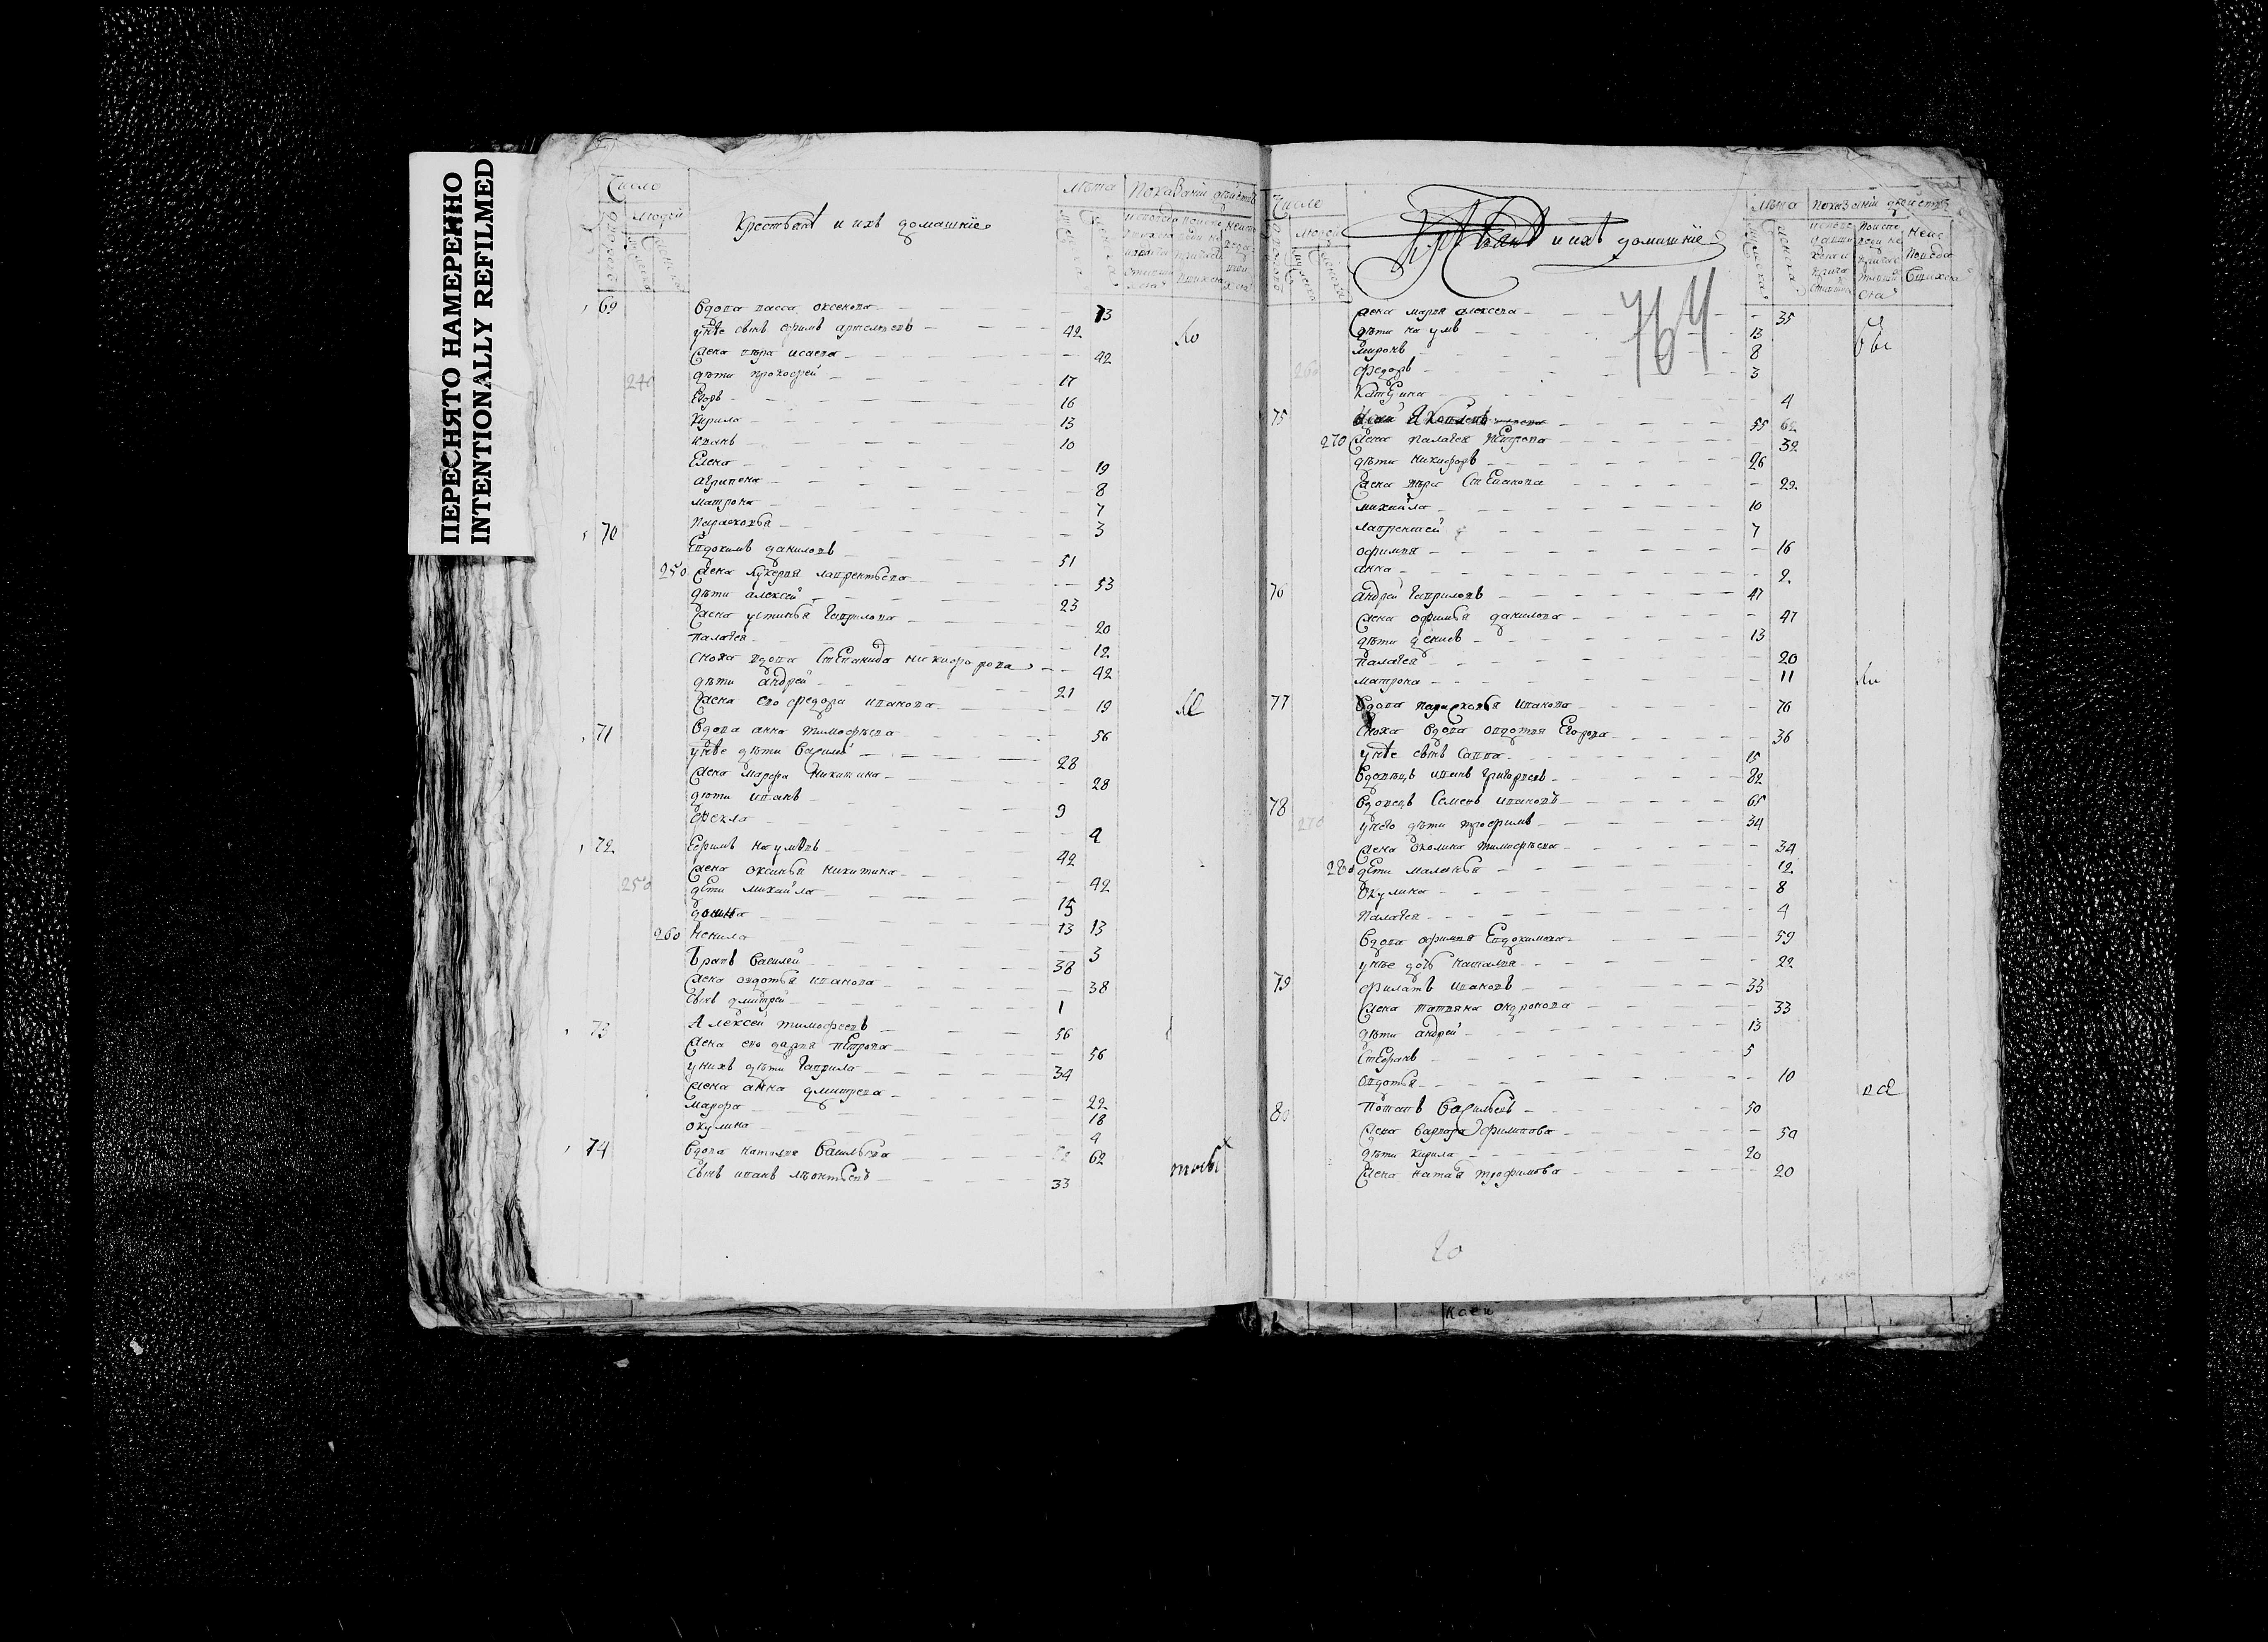 ПЕРЕСНЯТО НАМЕРЕННО
INTENTIONALLY REFILMED
Число
Людей
Крестьянѣ и ихъ домашніе
Лѣта
69 Вдова васса оксенова 73
у нѣе сынъ ефимъ артемьевъ 42
Жена вѣра исаева 42
240 дѣти прокофей 17
Егоръ 16
Кирило 13
иванъ 10
Елена 19
агрипена 8
матрона 7
Парасковья 3
70 Евдокимъ даниловъ 51
250 Жена лукерья лаврентьева 53
дѣти алексей 23
Жена устинья гаврилова 20
палагея 12
сноха вдова Степанида никифорова 42
дѣти андрей 21
Жена его федора иванова 19
71 Вдова анна тимофѣева 56
у нѣе дѣти Василей 28
Жена марфа никитина 28
дѣти иванъ 9
Фекла 4
72 Ефимъ наумовъ 42
Жена оксинья никитина 42
250 дѣти михайла 15
13 13
260 ненила 3
братъ Василей 38
Жена овдотья иванова 38
Сынъ дмитрей 1
73 Алексей тимофеевъ 56
Жена его дарья петрова 56
у нихъ дѣти гаврила 34
Жена анна дмитрева 22
марфа 18
окулина 4
74 Вдова наталья Васильева 62
Сынъ иванъ леонтьевъ 33
Число
Людей
и ихъ домашніе
764
Лѣта
Жена марья алексева 35
дѣти наумъ 13
миронъ 8
федоръ 3
Катерина 4
75 55
270 Жена палагея петрова 32
дѣти никифоръ 26
Жена вѣра Степанова 22
михайла 10
лаврентей 7
офимья 16
анна 2
76 андрей гавриловъ 47
Жена офимья данилова 47
дѣти денисъ 13
палагея 20
матрона 11
77 Вдова парасковья иванова 76
Сноха вдова овдотья Егорова 36
у нѣе сынъ Савва 15
Вдовецъ иванъ григорьевъ 82
78 Вдовецъ Семенъ ивановъ 65
270 у него дѣти трофимъ 34
Жена окулина тимофѣева 34
280 дѣти маланья 12
Окулина 8
Палагея 4
Вдова офимья Евдокимова 59
у нѣе дочь наталья 22
79 филатъ ивановъ 33
Жена татьяна андронова 33
дѣти андрей 13
Стефанъ 5
овдотья 10
80 Потапъ Васильевъ 50
Жена варвара филипова 50
дѣти кирила 20
Жена наталья трофимова 20
20